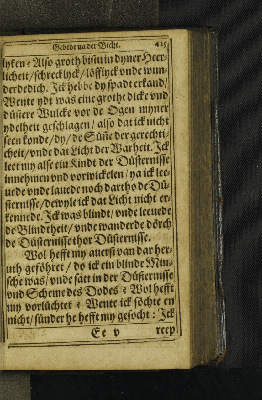 Gebede na der Bicht. 425
lyken? Also groth bistu in dyner Heer-
licheit / schrecklyck / löfflyck vnde wun-
derbedich. Ick hebbe dy spade erkand /
Wente ydt was eine grothe dicke vnd
düstere Wulcke vor de Ogen myner
ydelheit geschlagen / also dat ick nicht
seen konde / dy / de Süñe der gerechti-
cheit / vnde dat Licht der Warheit. Ick
leet my alse ein Kindt der Düsternisse
innehmen vnd vorwickelen / ya ick lee-
uede vnde lauede noch dartho de Dü-
sternisse / dewyle ick dat Licht nicht er-
kennede. Ick was blindt / vnde leeuede
de Blindtheit / vnde wanderde dörch
de Düsternisse thor Düsternisse.
Wol hefft my auerst van dar her-
uth geföhret / do ick ein blinde Min-
sche was / vnde satt in der Düsternisse
vnd Scheme des Dodes? Wol hefft
my vorlüchtet? Wente ick söchte en
nicht / sünder he hefft my gesocht: Ick
Ee v
reep